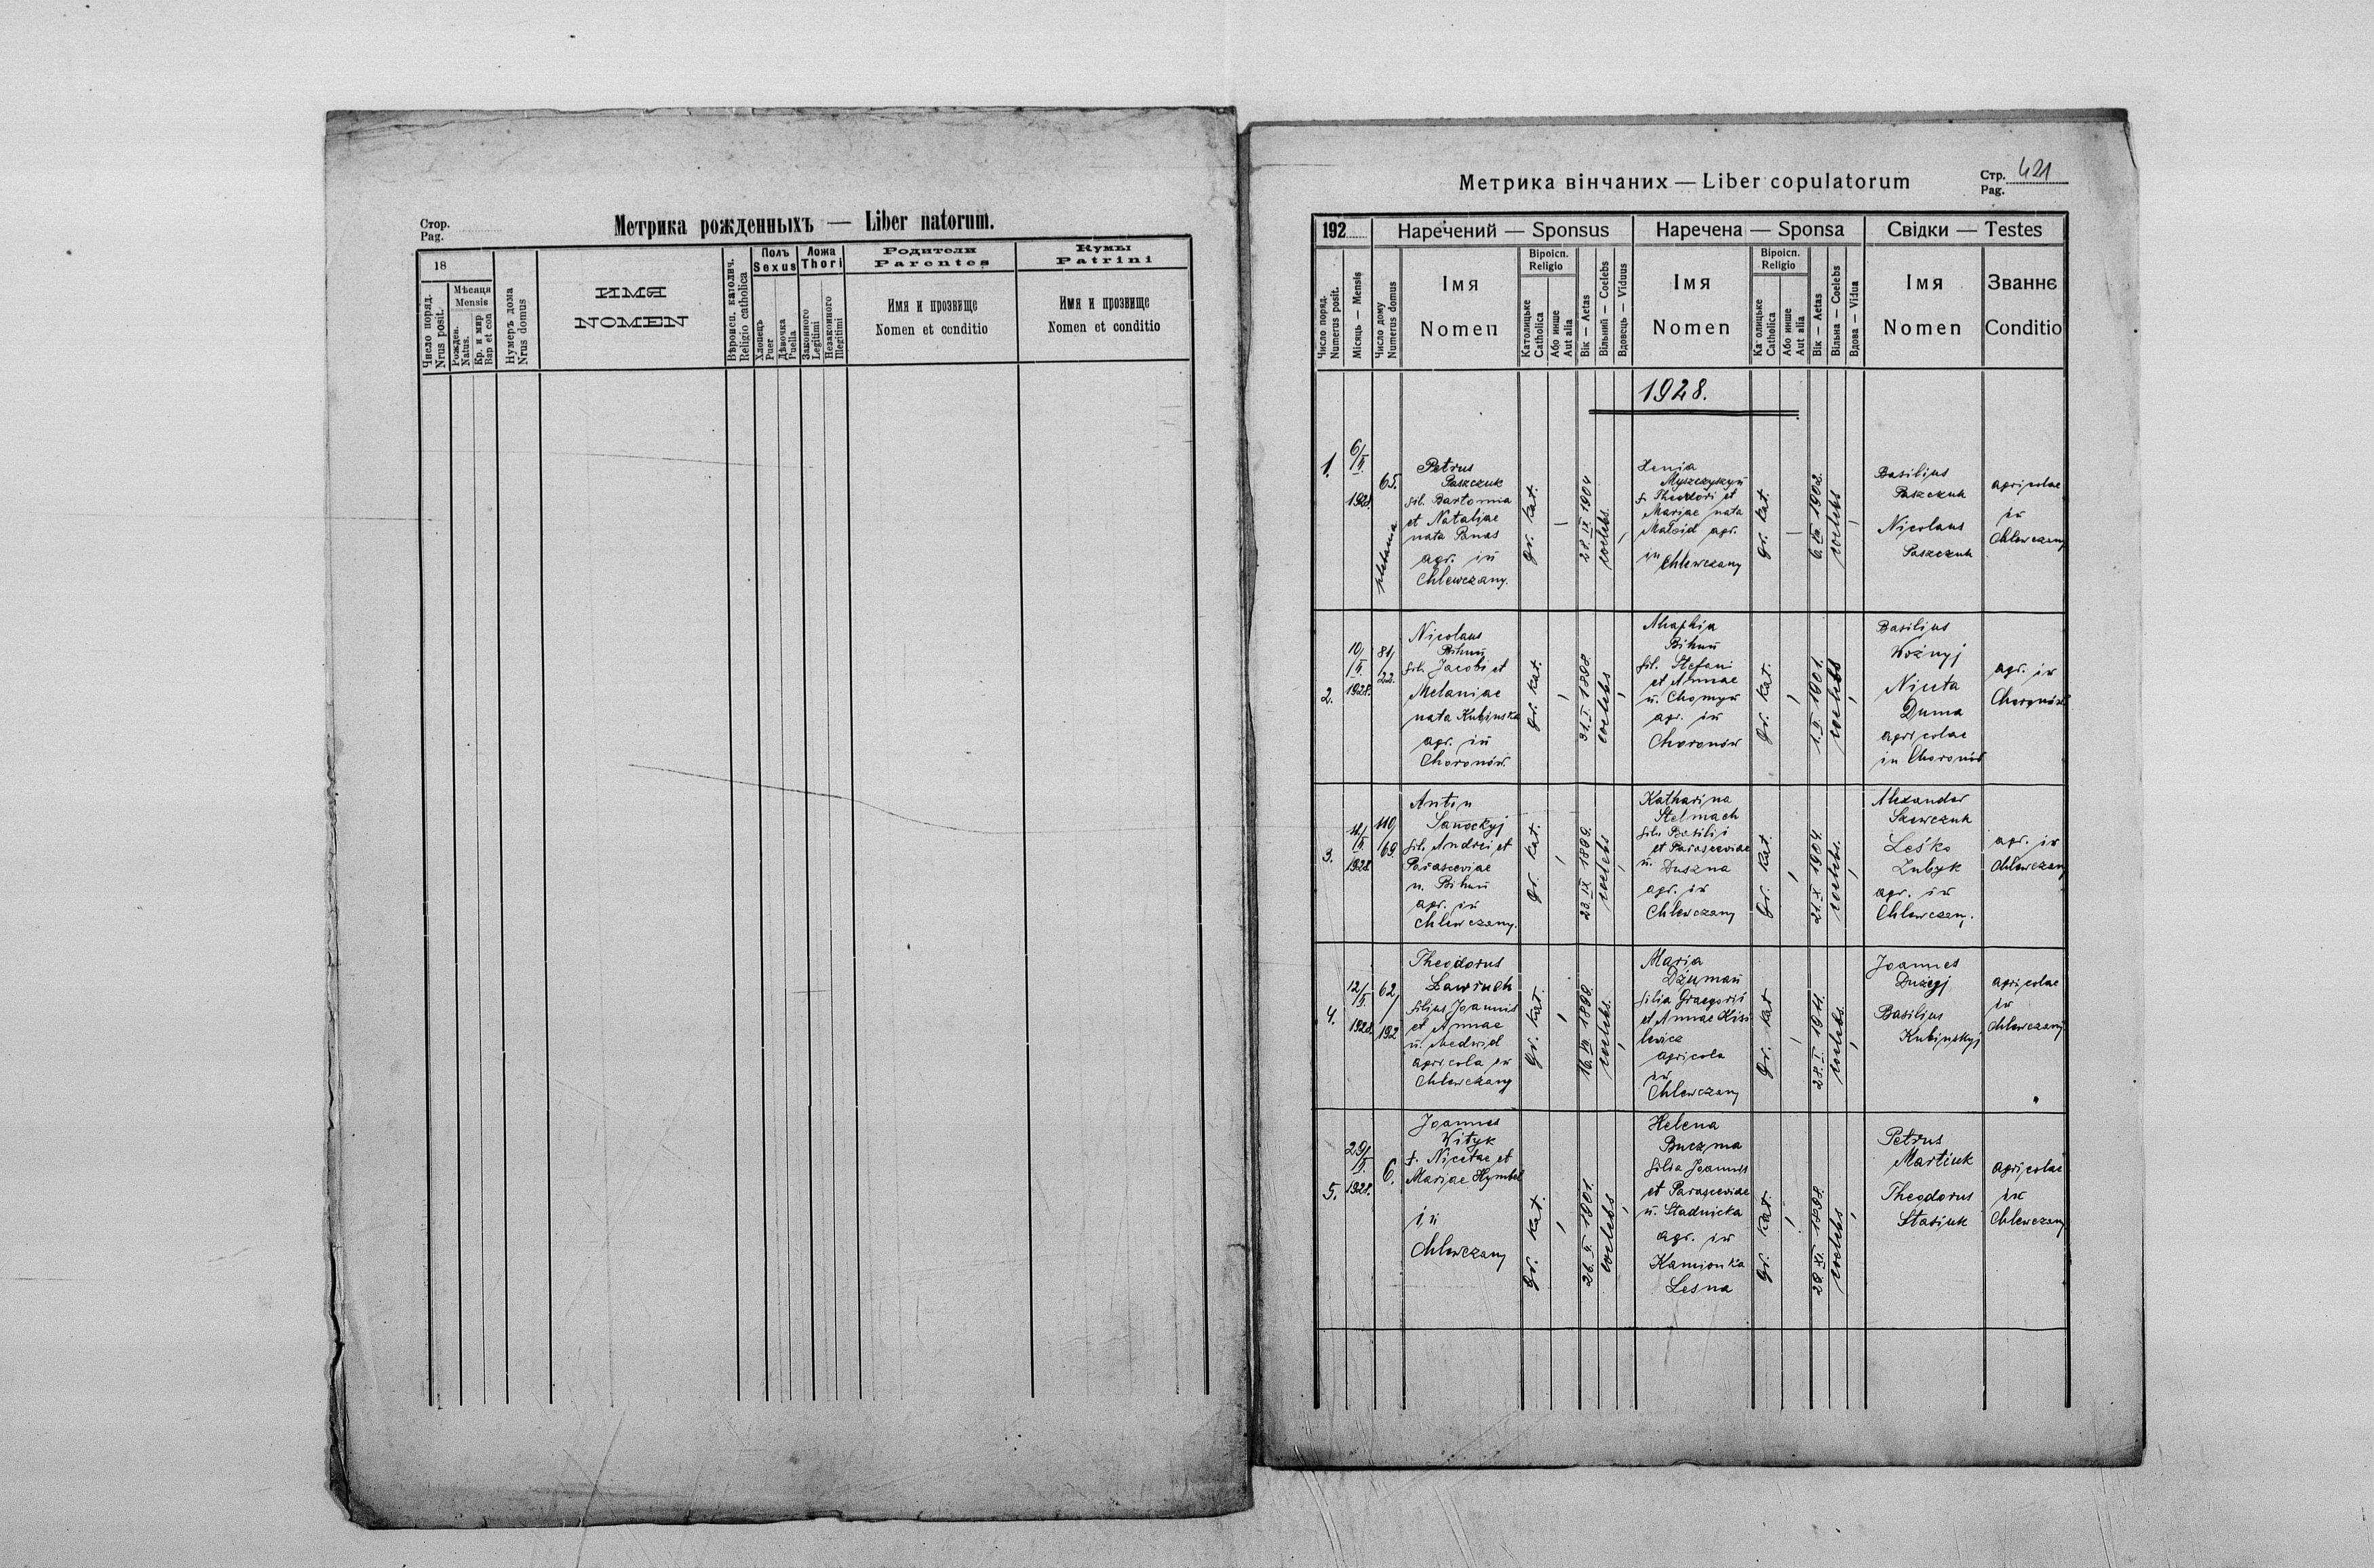 Стор.
Pag.
Метрика рожденныхъ — Liber natorum.
18
Число поряд.
Nrus posit.
Мѣсяця
Mensis
Рожден.
Natus.
Кр. и мир
Bap et con
Нумеръ дома
Nrus domus
ИМЯ
NOMEN
Вѣроисп. католич.
Religio catholica
Полъ
Sexus
Хлопецъ
Puer
Дѣвочка
Puella
Ложа
Thori
Законного
Legitimi
Незаконного
Illegitimi
Родители
Parentes
Имя и прозвище
Nomen et conditio
Кумы
Patrini
Имя и прозвище
Nomen et conditio
Метрика вінчаних — Liber copulatorum
Стр. 421
Pag.
192
Наречений — Sponsus
Наречена — Sponsa
Свідки — Testes
Число поряд.
Numerus posit.
Місяць — Mensis
Число дому
Numerus domus
Імя
Nomen
Віроісп.
Religio
Католицьке
Catholica
Або инше
Aut alia
Вік — Aetas
Вільний — Coelebs
Вдовець — Viduus
Імя
Nomen
Віроісп.
Religio
Ка олицьке
Catholica
Або инше
Aut alia
Вік — Aetas
Вільна — Coelebs
Вдова — Vidua
Імя
Nomen
Званнє
Conditio
1928.
1.
6/II.
1928.
65.
plebania
Petrus
Paszczuk
fil. Bartomia
et Nataliae
nata Panas
agr. in
Chlewczany.
gr. kat.
28. IX. 1904
coelebs.
Xenia
Myszczyszyn
f. Theodori et
Mariae nata
agr.
in Chlewczany
gr. kat.
1902.
coelebs
Basilius
Paszczuk
Nicolaus
Paszczuk
agricolae
in
Chlewczany
2.
10/II.
1928.
81/22.
Nicolaus
Bihun
fil. Jacobi et
Melaniae
nata Kubinska
agr. in
Choronów.
gr. kat.
31. I. 1898.
coelebs
Ahaphia
Bihun
fil. Stefani
et Annae
n. Chomyn
agr. in
Choronów
gr. kat.
1901.
coelebs
Basilius
Woźnyj
Niceta
Duma
agricolae
in Choronów
agr. in
Choronów
3.
12/II.
1928
110/69.
Antin
Sanockyj
fil. Andrei et
Parasceviae
n. Bihun
agr. in
Chlewczany.
gr. kat.
23. IX. 1899.
coelebs
Katharina
Stelmach
fil. Basilii
et Parasceviae
n. Duszna
agr. in
Chlewczany
gr. kat.
21. X. 1904.
coelebs.
Alexander
Szewczuk
Leśko
Zubyk
agr. in
Chlewczany.
agr. in
Chlewczany
4.
12/II.
1928.
62/192
Theodorus
Ławruch
filius Joannis
et Annae
n. Medwid
agricola in
Chlewczany
gr. kat.
coelebs.
Maria
Dżuman
filia Gregorii
et Annae Kisi
lewicz
agricola
in
Chlewczany
gr. kat
28. I. 1911.
coelebs.
Joannes
Dużyj
Basilius
Kubinskyj
agricolae
in
Chlewczany
5.
29/II.
1928.
6.
Joannes
Wityk
f. Nicetae et
Mariae
in
Chlewczany
gr. kat.
26. II. 1901.
coelebs
Helena
Buczma
filia Joannis
et Parasceviae
n. Stadnicka
agr. in
Kamionka
Lesna
gr. kat.
1898.
coelebs
Petrus
Martiuk
Theodorus
Stasiuk
agricolae
in
Chlewczany